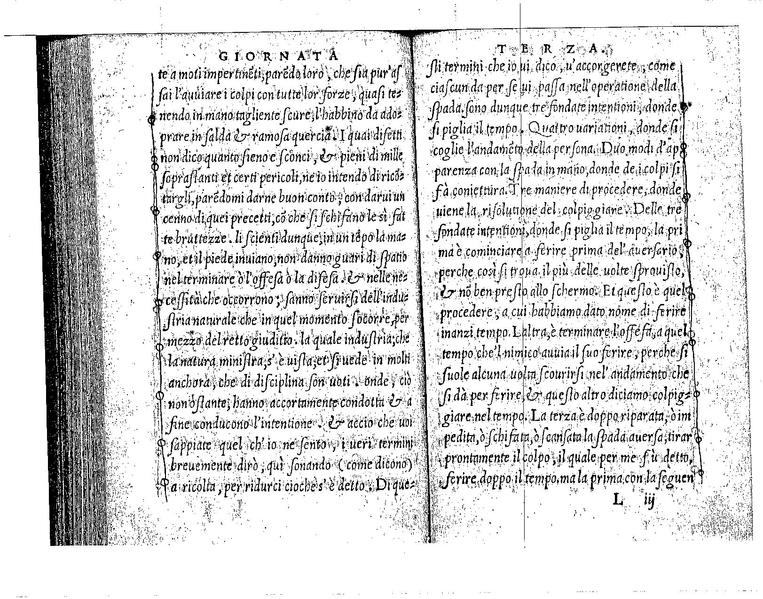 GIORNATA
te a moti impertinēti, parēdo loro, che sia pur' as
sai l'auuiare i colpi con tutte lor forze, quasi te-
nendo, in mano tagliente scure, l'habbino da ado-
prare in salda & ramosa quercia. I quai difetti
non dico quanto sieno e sconci, & pieni di mille
soprastanti et certi pericoli, ne io intendo di rico-
targli, parēdomi darne buon conto, con darui un
cenno di quei precetti, cō che si schifano le sì fat
te bruttezze. li scienti dunque, in un tēpo la ma-
no, et il piede inuiano, non danno guari di spatio
nel terminare ò l'offesa ò la difesa. & nelle ne-
cessità che occorrono; sanno seruirsi dell'indu-
stria naturale che in quel momento socorre, per
mezzo del retto giuditto. la quale industria, che
la natura ministra, s' è uista, et si uede in molti
anchora, che di disciplina son uoti. onde, ciò
non ostante, hanno accortamente condotta & a
fine conducono l'intentione. & accio che uoi
sappiate quel ch' io ne sento, i ueri termini
breuemente dirò, quì sonando (come dicono)
a ricolta, per ridurci cioche s' è detto. Di que-
TERZA.
sti termini che io ui dico, u' accorgerete, come
ciascun da per se ui passa nell'operatione della
spada. sono dunque tre fondate intentioni, donde
si piglia il tempo. Quattro uariationi, donde si
coglie l'andamēto della persona. Duo modi d'ap
parenza con la spada in mano, donde de i colpi si
fà coniettura. Tre maniere di procedere, donde
uiene la risolutione del colpiggiare. Delle tre
fondate intentioni, donde si piglia il tempo, la pri
ma è cominciare a ferire prima del' auersario,
perche così si troua il più delle uolte sprouisto,
& nō ben presto allo schermo. Et questo è quel
procedere, a cui habbiamo dato nome di ferire
inanzi tempo. L'altra, è terminare l'offesa, a quel
tempo che'l nimico auuia il suo ferire, perche si
suole alcuna uolta scourirsi nel' andamento che
si dà per ferire, & questo altro diciamo colpig-
giare nel tempo. La terza è doppo riparata, ò im
pedita, ò schifata, ò scansata la spada auersa, tirar
prontamente il colpo, il quale per me fù detto,
ferire doppo il tempo, ma la prima, con la seguen
L iij